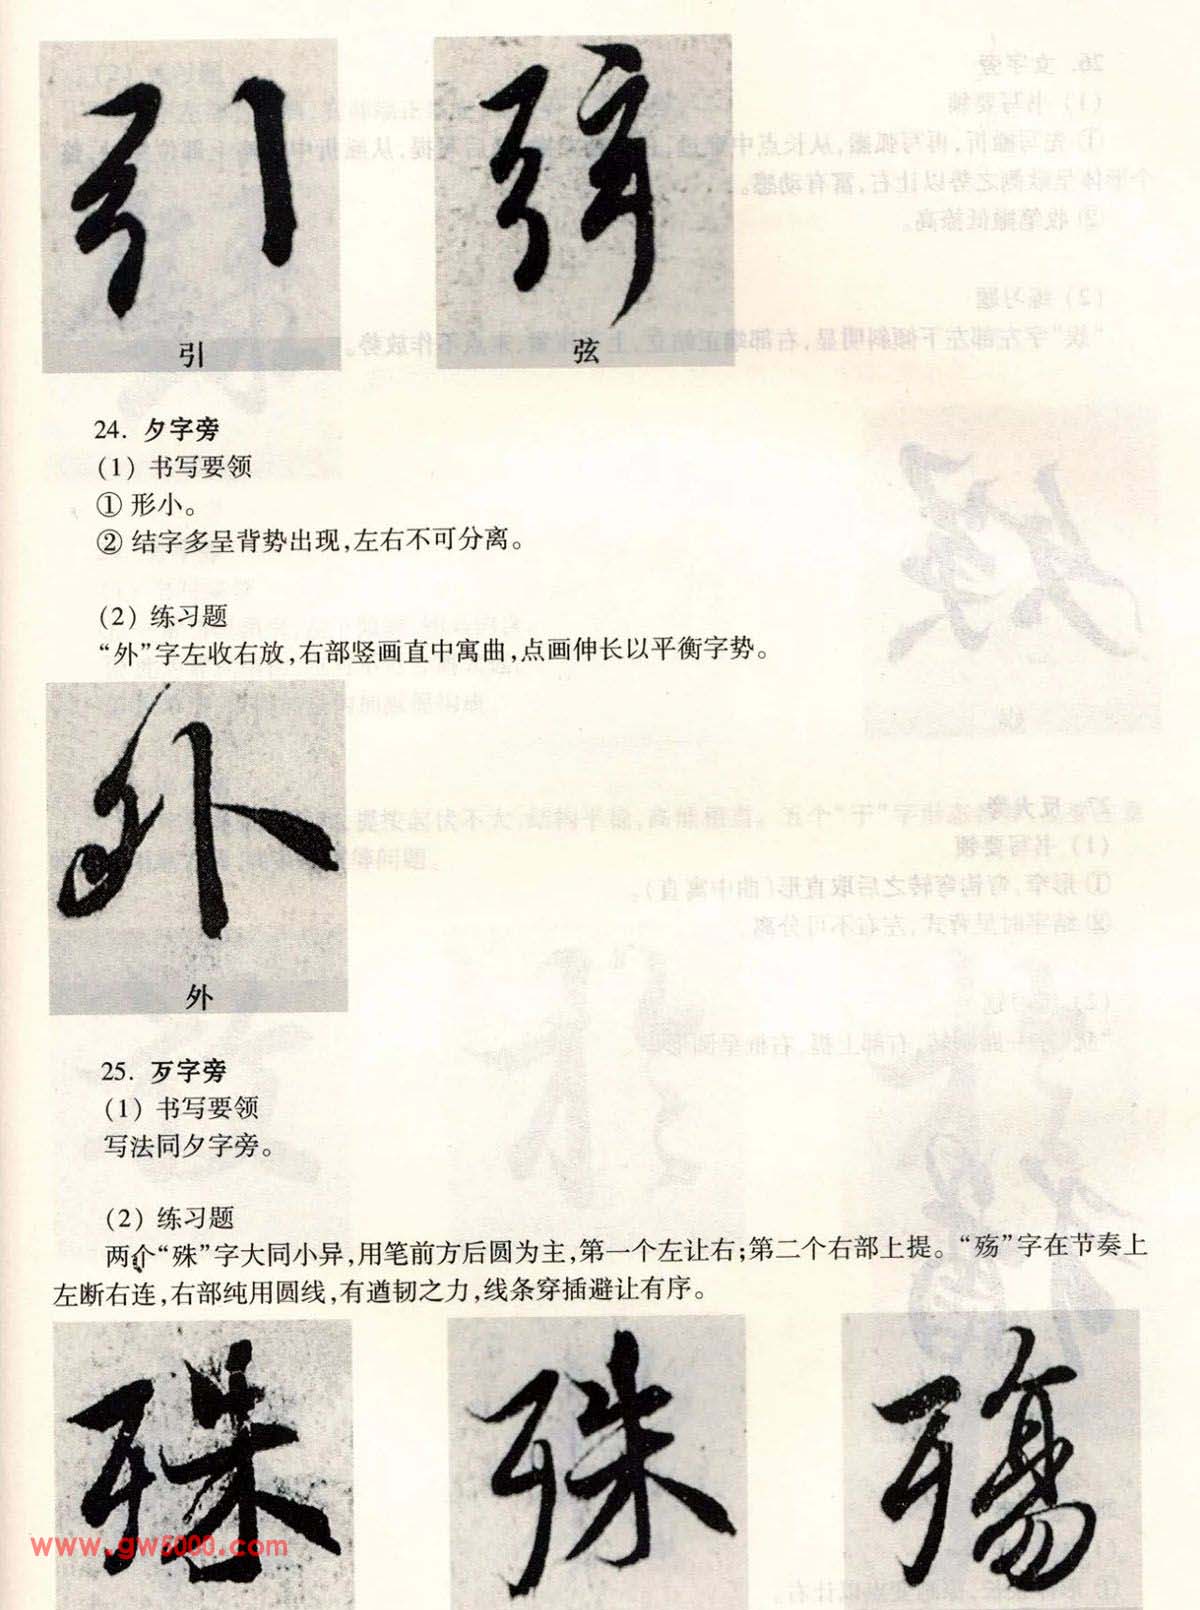 引 弦
引
弦
24. 夕字旁
(1) 书写要领
① 形小。
② 结字多呈背势出现,左右不可分离。
(2) 练习题
“外”字左收右放,右部竖画直中寓曲,点画伸长以平衡字势。
外
外
25. 歹字旁
(1) 书写要领
写法同夕字旁。
(2) 练习题
两个“殊”字大同小异,用笔前方后圆为主,第一个左让右;第二个右部上提。“殇”字在节奏上
左断右连,右部纯用圆线,有遒韧之力,线条穿插避让有序。
殊 殊 殇
www.gw5000.com